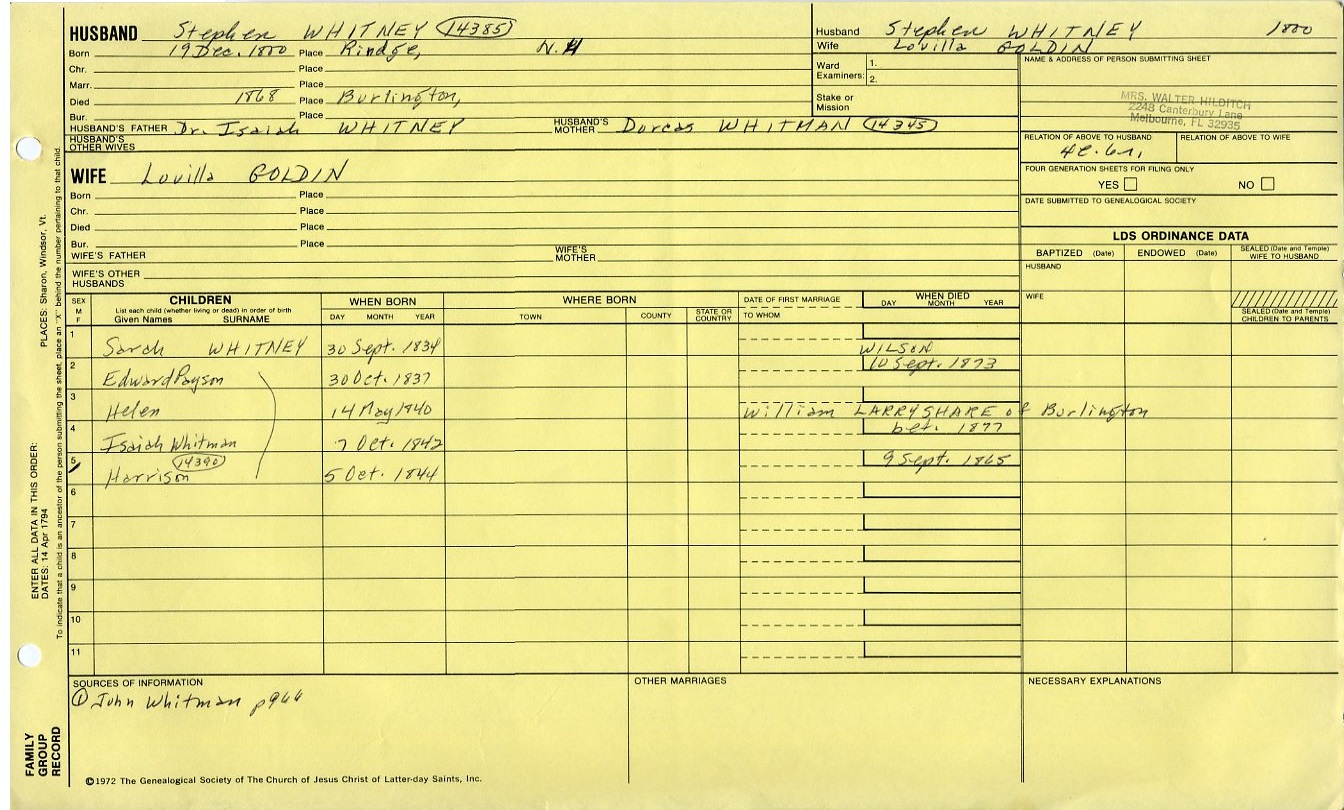 HUSBAND Stephen WHITNEY (14385)
Born 19 Dec. 1800 Place Rindge, N.H
Chr. Place
Marr. Place
Died 1868 Place Burlington,
Bur. Place
HUSBAND'S FATHER Dr. Isaiah WHITNEY HUSBAND'S MOTHER Dorcas WHITMAN (14345)
HUSBAND'S OTHER WIVES
WIFE Lovilla GOLDIN
Born Place
Chr. Place
Died Place
Bur. Place
WIFE'S FATHER WIFE'S MOTHER
WIFE'S OTHER HUSBANDS
Husband Stephen WHITNEY 1800
Wife Lovilla GOLDIN
Ward Examiners: 1.
2.
Stake or Mission
NAME & ADDRESS OF PERSON SUBMITTING SHEET
MRS. WALTER HILDITCH
2248 Canterbury Lane
Melbourne, FL 32935
RELATION OF ABOVE TO HUSBAND RELATION OF ABOVE TO WIFE
FOUR GENERATION SHEETS FOR FILING ONLY
YES NO
DATE SUBMITTED TO GENEALOGICAL SOCIETY
LDS ORDINANCE DATA
BAPTIZED (Date) ENDOWED (Date) SEALED (Date and Temple) WIFE TO HUSBAND
HUSBAND
WIFE
SEALED (Date and Temple) CHILDREN TO PARENTS
SEX M F
CHILDREN
List each child (whether living or dead) in order of birth
Given Names SURNAME
WHEN BORN
DAY MONTH YEAR
WHERE BORN
TOWN COUNTY STATE OR COUNTRY
DATE OF FIRST MARRIAGE
TO WHOM
WHEN DIED
DAY MONTH YEAR
1 Sarah WHITNEY 30 Sept. 1834 WILSON
2 Edward Payson 30 Oct. 1837 10 Sept. 1873
3 Helen 14 May 1840 William LARRYSHARE of Burlington
4 Isaiah Whitman 7 Oct. 1842 bet. 1877
5 Harrison (14390) 5 Oct. 1844 9 Sept. 1865
6
7
8
9
10
11
SOURCES OF INFORMATION
① John Whitman p966
OTHER MARRIAGES
NECESSARY EXPLANATIONS
©1972 The Genealogical Society of The Church of Jesus Christ of Latter-day Saints, Inc.
FAMILY GROUP RECORD
ENTER ALL DATA IN THIS ORDER:
DATES: 14 Apr 1794 PLACES: Sharon, Windsor, Vt.
To indicate that a child is an ancestor of the person submitting the sheet, place an "X" behind the number pertaining to that child.